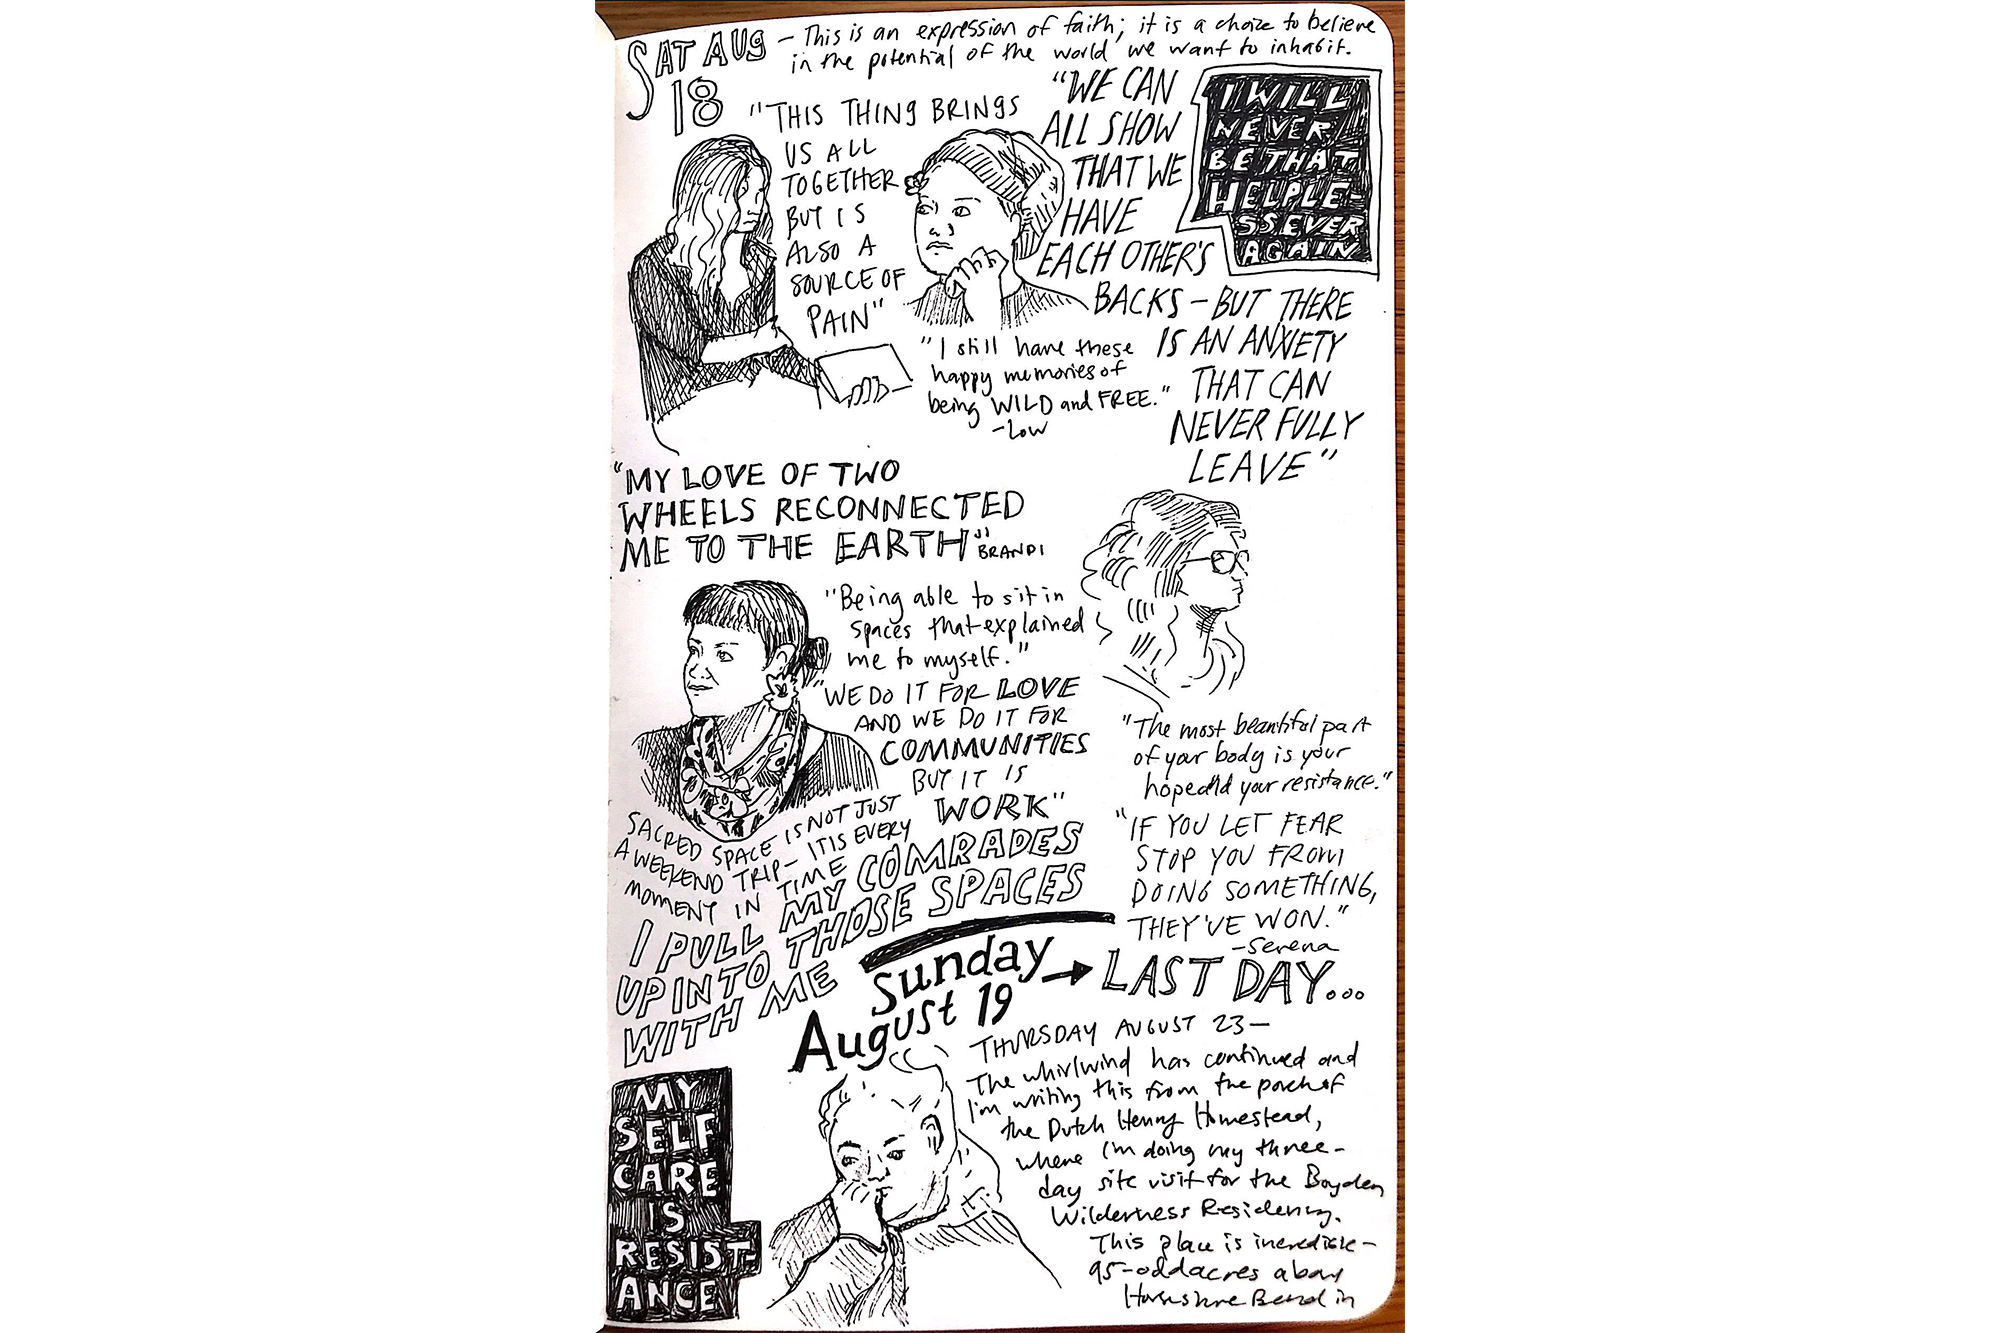 SAT AUG
18
— This is an expression of faith; it is a choice to believe
in the potential of the world we want to inhabit.
"THIS THING BRINGS
US ALL
TOGETHER
BUT IS
ALSO A
SOURCE OF
PAIN"
"WE CAN
ALL SHOW
THAT WE
HAVE
EACH OTHER'S
BACKS – BUT THERE
IS AN ANXIETY
THAT CAN
NEVER FULLY
LEAVE"
I WILL
NEVER
BE THAT
HELPLE-
SSEVER
AGAIN
"I still have these
happy memories of
being WILD and FREE."
-Low
"MY LOVE OF TWO
WHEELS RECONNECTED
ME TO THE EARTH"
BRANDI
"Being able to sit in
spaces that explained
me to myself."
"WE DO IT FOR LOVE
AND WE DO IT FOR
COMMUNITIES
BUT IT IS
WORK"
SACRED SPACE IS NOT JUST
A WEEKEND TRIP – IT IS EVERY
MOMENT IN TIME
I PULL MY COMRADES
UP INTO THOSE SPACES
WITH ME
"The most beautiful part
of your body is your
hoped your resistance."
"IF YOU LET FEAR
STOP YOU FROM
DOING SOMETHING,
THEY'VE WON."
-Serena
Sunday
August 19
→ LAST DAY...
MY
SELF
CARE
IS
RESIST-
ANCE
THURSDAY AUGUST 23—
The whirlwind has continued and
I'm writing this from the porch of
the Dutch Henry Homestead,
where I'm doing my three-
day site visit for the Boyden
Wilderness Residency.
This place is incredible –
95-odd acres above
Horseshoe Bend in